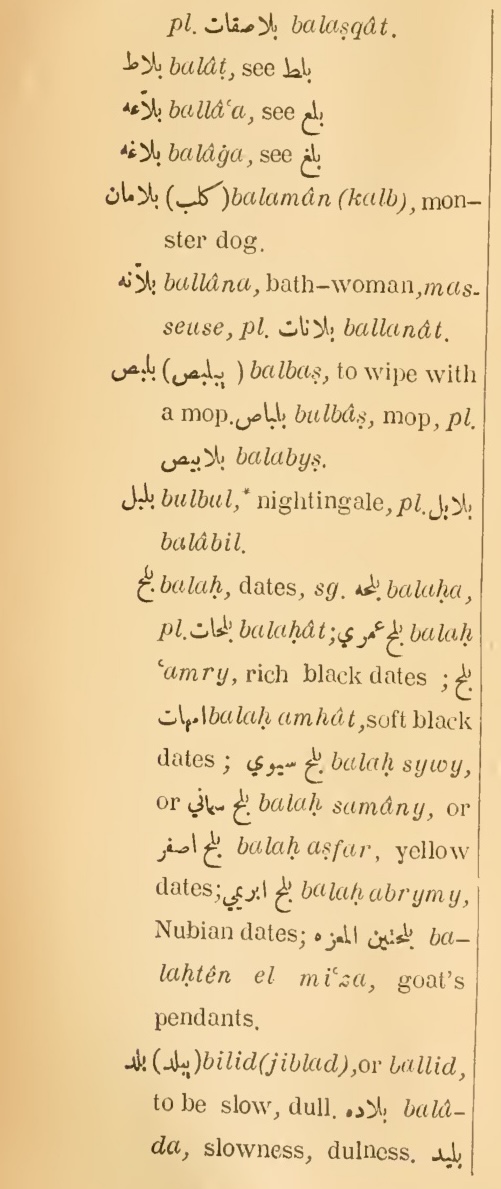 pl. بلاصقات balaṣqât.
بلاط balâṭ, see بلط
بلّاعه ballâʿa, see بلع
بلاغه balâġa, see بلغ
بلامان (كلب) balamân (kalb), mon-
ster dog.
بلّانه ballâna, bath-woman, mas-
seuse, pl. بلانات ballanât.
بلبص (يبلبص) balbaṣ, to wipe with
a mop. بلباص bulbâṣ, mop, pl.
بلابيص balabyṣ.
بلبل bulbul,* nightingale, pl. بلابل
balâbil.
بلح balaḥ, dates, sg. بلحه balaḥa,
pl. بلحات balaḥât; بلح عمري balaḥ
ʿamry, rich black dates ; بلح
امهات balaḥ amhât, soft black
dates ; بلح سيوي balaḥ sywy,
or بلح سماني balaḥ samâny, or
بلح اصفر balaḥ aṣfar, yellow
dates; بلح ابريمي balaḥ abrymy,
Nubian dates; بلحتين المعزه ba-
laḥtên el miʿza, goat's
pendants.
بلد (يبلد) bilid (jiblad), or ballid,
to be slow, dull. بلاده balâ-
da, slowness, dulness. بليد